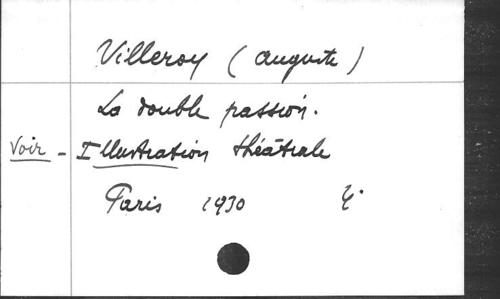 Villeroy (Auguste)
La double passion.
Voir - Illustration théâtrale
Paris 1930 4°